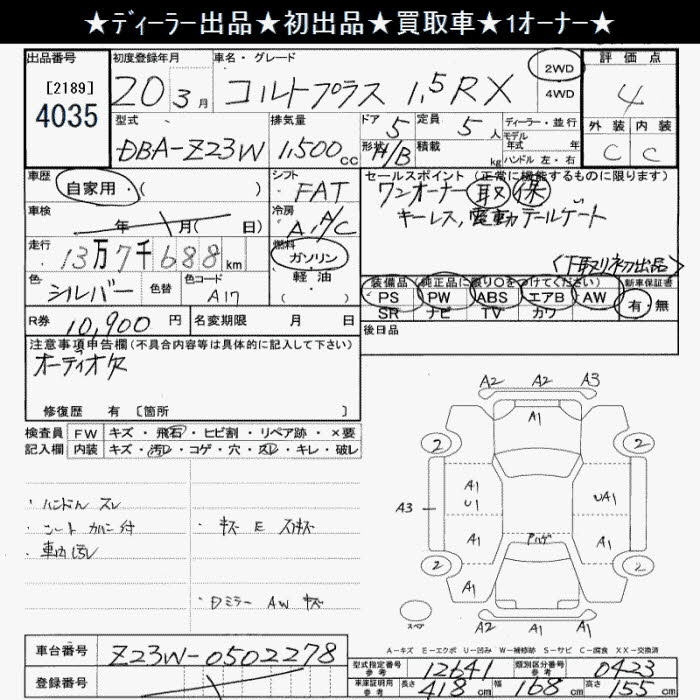 ★ディーラー出品★初出品★買取車★1オーナー★
出品番号 初度登録年月 車名・グレード 2WD 評価点
[2189] 20 3月 コルトプラス 1.5RX 4WD 4
4035
型式 排気量 ドア 5 定員 5人 ディーラー・並行 外装 内装
モデル年式 年
DBA-Z23W 1,500cc 形状 H/B 積載 kg ハンドル 左・右 C C
車歴 シフト セールスポイント (正常に機能するものに限ります)
自家用・( ) FAT ワンオーナー 取 保
車検 冷房 キーレス,電動テールゲート
年 月( 日) A/C
走行 燃料 〈下取り初出品〉
13万7千688km ガソリン
軽・油
( )
装備品 (純正品に限り○をつけてください) 新車保証書
色 シルバー 色替 色コード A17 PS PW ABS エアB AW 有 無
SR ナビ TV カワ
R券 10,900円 名変期限 月 日 後日品
注意事項申告欄(不具合内容等は具体的に記入して下さい)
オーディオ欠
修復歴 有 [箇所 ]
検査員 FW キズ・飛石・ヒビ割・リペア跡・×要
記入欄 内装 キズ・汚レ・コゲ・穴・スレ・キレ・破レ
・ハンドル スレ
・シート カバー付 ・キズ E スリキズ
・車内汚レ
・Dミラー AW キズ
A2 A2 A3
A1
2 2
A1
U1 UA1
A3
A1 A1
2 2
A1
スペア
A2 A1 A1
A-キズ E-エクボ U-凹み W-補修跡 S-サビ C-腐食 XX-交換済
車台番号 Z23W-0502278 型式指定番号 参考 12641 類別区分番号 参考 0423
登録番号 車庫証明用 参考 長さ 418cm 幅 168cm 高さ 155cm